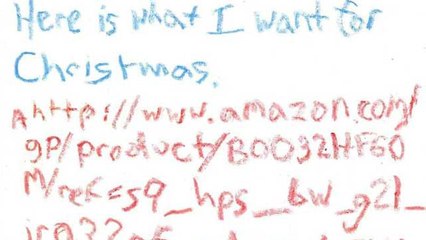 Here is what I want for
Christmas.
A http://www.amazon.com/
gp/product/B0032HF60
M/ref=s9_hps_bw_g21_